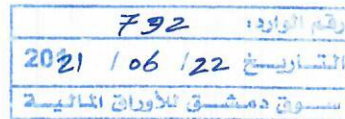 رقم الوارد: 792
التاريخ 22 / 06 / 2021
سوق دمشق للأوراق المالية